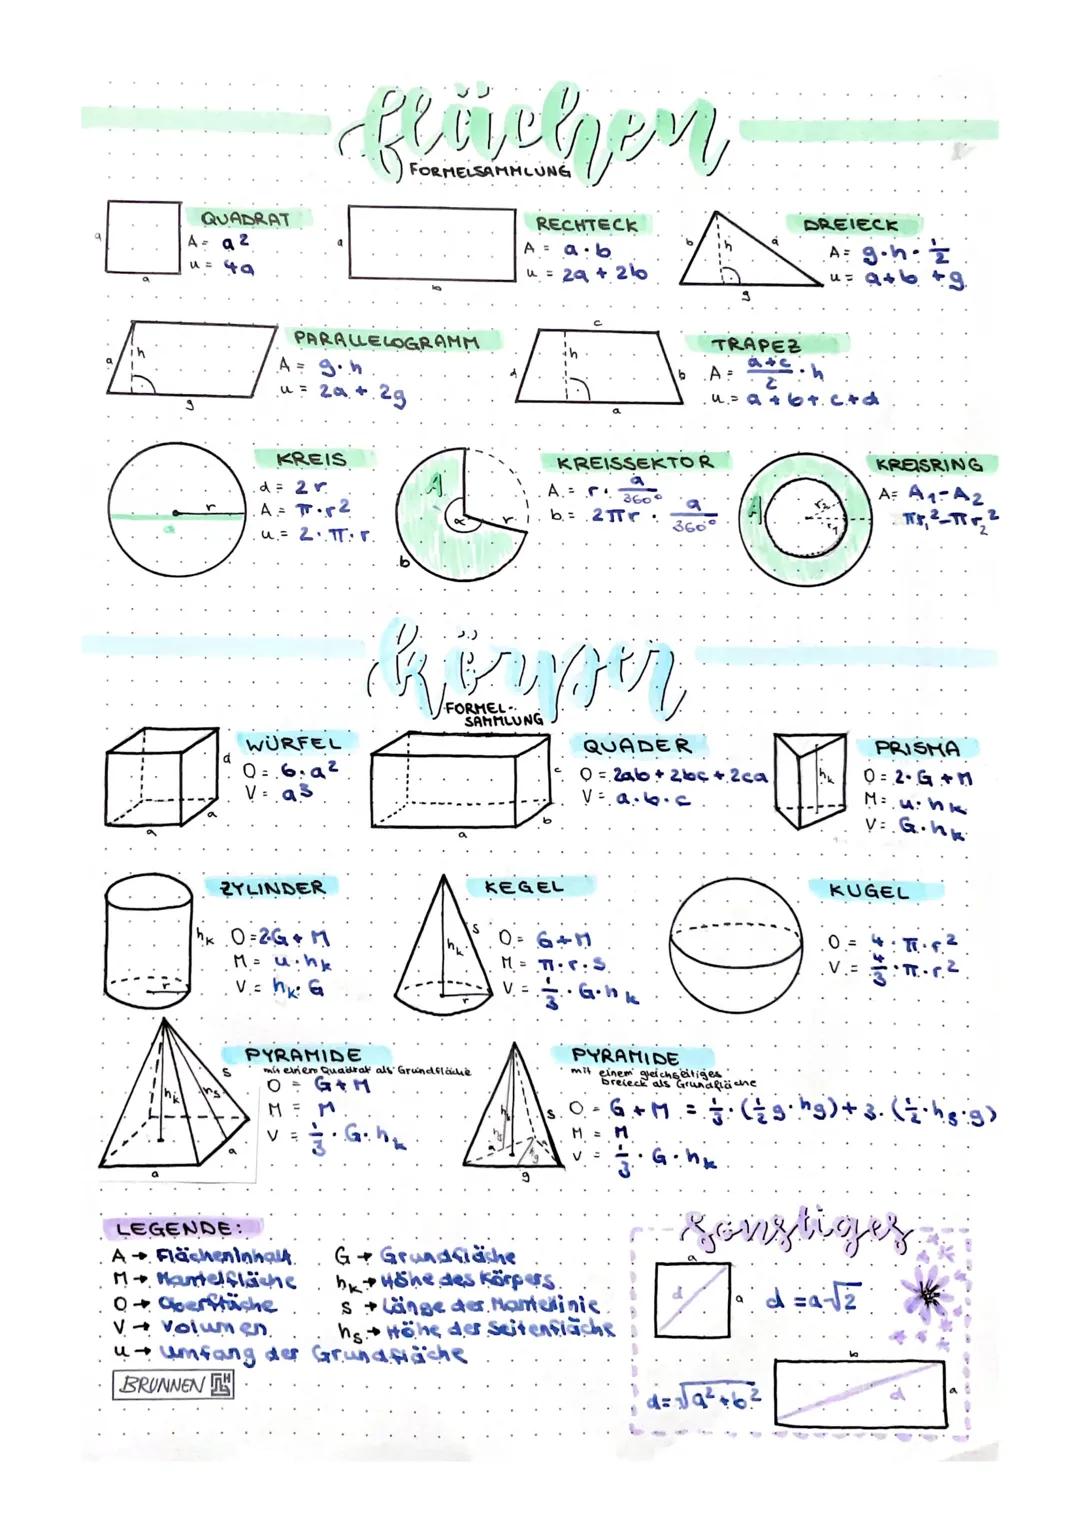 flächen
FORMELSAMMLUNG
QUADRAT
A = a²
u = 4a
a
a
RECHTECK
A = a·b
u = 2a + 2b
a
b
DREIECK
A = g·h·½
u = a+b+g
b
h
a
g
PARALLELOGRAMM
A = g·h
u = 2a + 2g
a
h
g
TRAPEZ
A = (a+c)/2 · h
u = a+b+c+d
c
h
d
b
a
KREIS
d = 2r
A = π·r²
u = 2·π·r
r
d
KREISSEKTOR
A = r · a/360°
b = 2πr · a/360°
A
α
r
b
KREISRING
A = A₁-A₂
πr₁²-πr₂²
A
r₂
r₁
körper
FORMEL-
SAMMLUNG
WÜRFEL
O = 6·a²
V = a³
a
a
a
QUADER
O = 2ab + 2bc + 2ca
V = a·b·c
c
b
a
PRISMA
O = 2·G + M
M = u·hₖ
V = G·hₖ
hₖ
ZYLINDER
O = 2·G + M
M = u·hₖ
V = hₖ·G
hₖ
r
KEGEL
O = G+M
M = π·r·s
V = ⅓·G·hₖ
s
hₖ
r
KUGEL
O = 4·π·r²
V = 4/3·π·r²
PYRAMIDE
mit einem Quadrat als Grundfläche
O = G+M
M = M
V = ⅓·G·hₖ
s
hₖ
hs
a
a
PYRAMIDE
mit einem gleichseitiges
Dreieck als Grundfläche
O = G+M = ⅓·(½g·hg)+3·(½·hs·g)
M = M
V = ⅓·G·hₖ
s
hg
g
LEGENDE:
A → Flächeninhalt
M → Mantelfläche
O → Oberfläche
V → Volumen
u → Umfang der Grundfläche
G → Grundfläche
hₖ → Höhe des Körpers
s → Länge der Mantellinie
hs → Höhe der Seitenfläche
BRUNNEN
sonstiges
a
d
a
d = a√2
d = √a²+b²
b
d
a